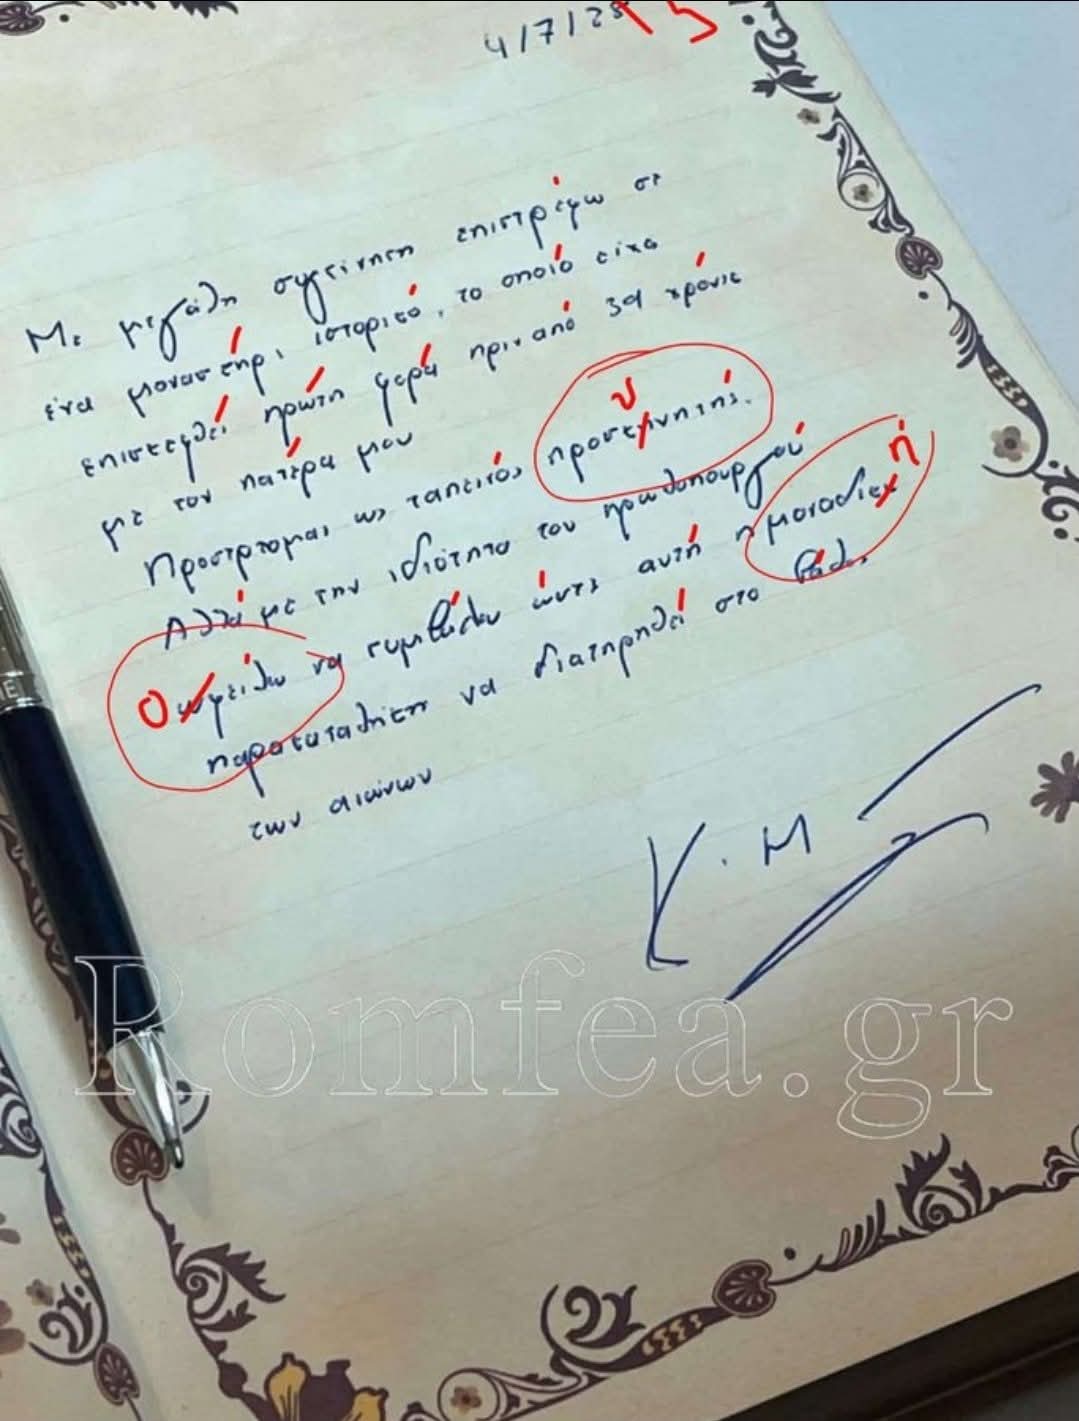 4/7/25
Με μεγάλη συγκίνηση επιστρέφω σε
ένα μοναστήρι ιστορικό, το οποίο είχα
επισκεφθεί πρώτη φορά πριν από 39 χρόνια
με τον πατέρα μου
Προσέρχομαι ως ταπεινός προσκηνητής.
υ
Αλλά με την ιδιότητα του πρωθυπουργού
ωφείλω να συμβάλω ώστε αυτή η μοναδικη
ή
Ο
παρακαταθήκη να διατηρηθεί στο βάθος
των αιώνων
Κ. Μ
Romfea.gr